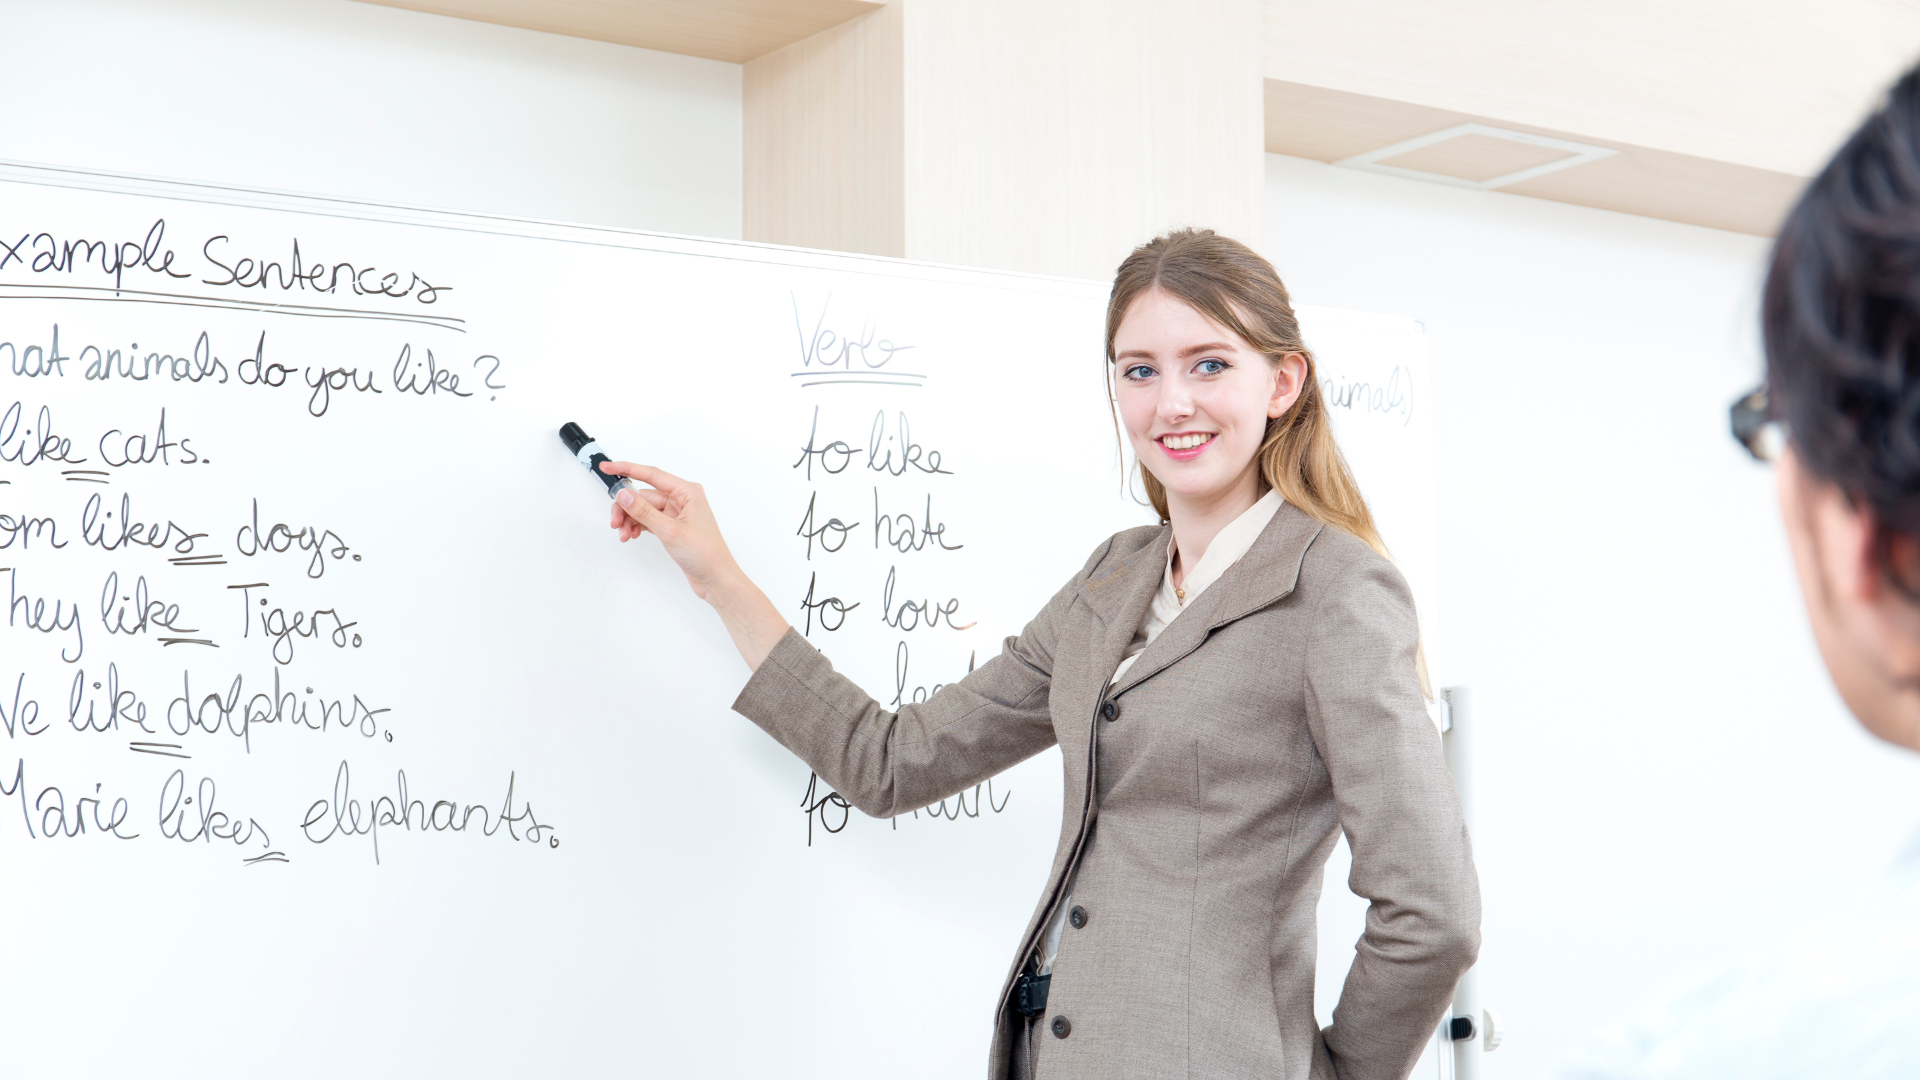 xample Sentences
hat animals do you like?
like cats.
om likes dogs.
They like Tigers.
We like dolphins.
Marie likes elephants.
Verb
to like
to hate
to love
to
nimals)